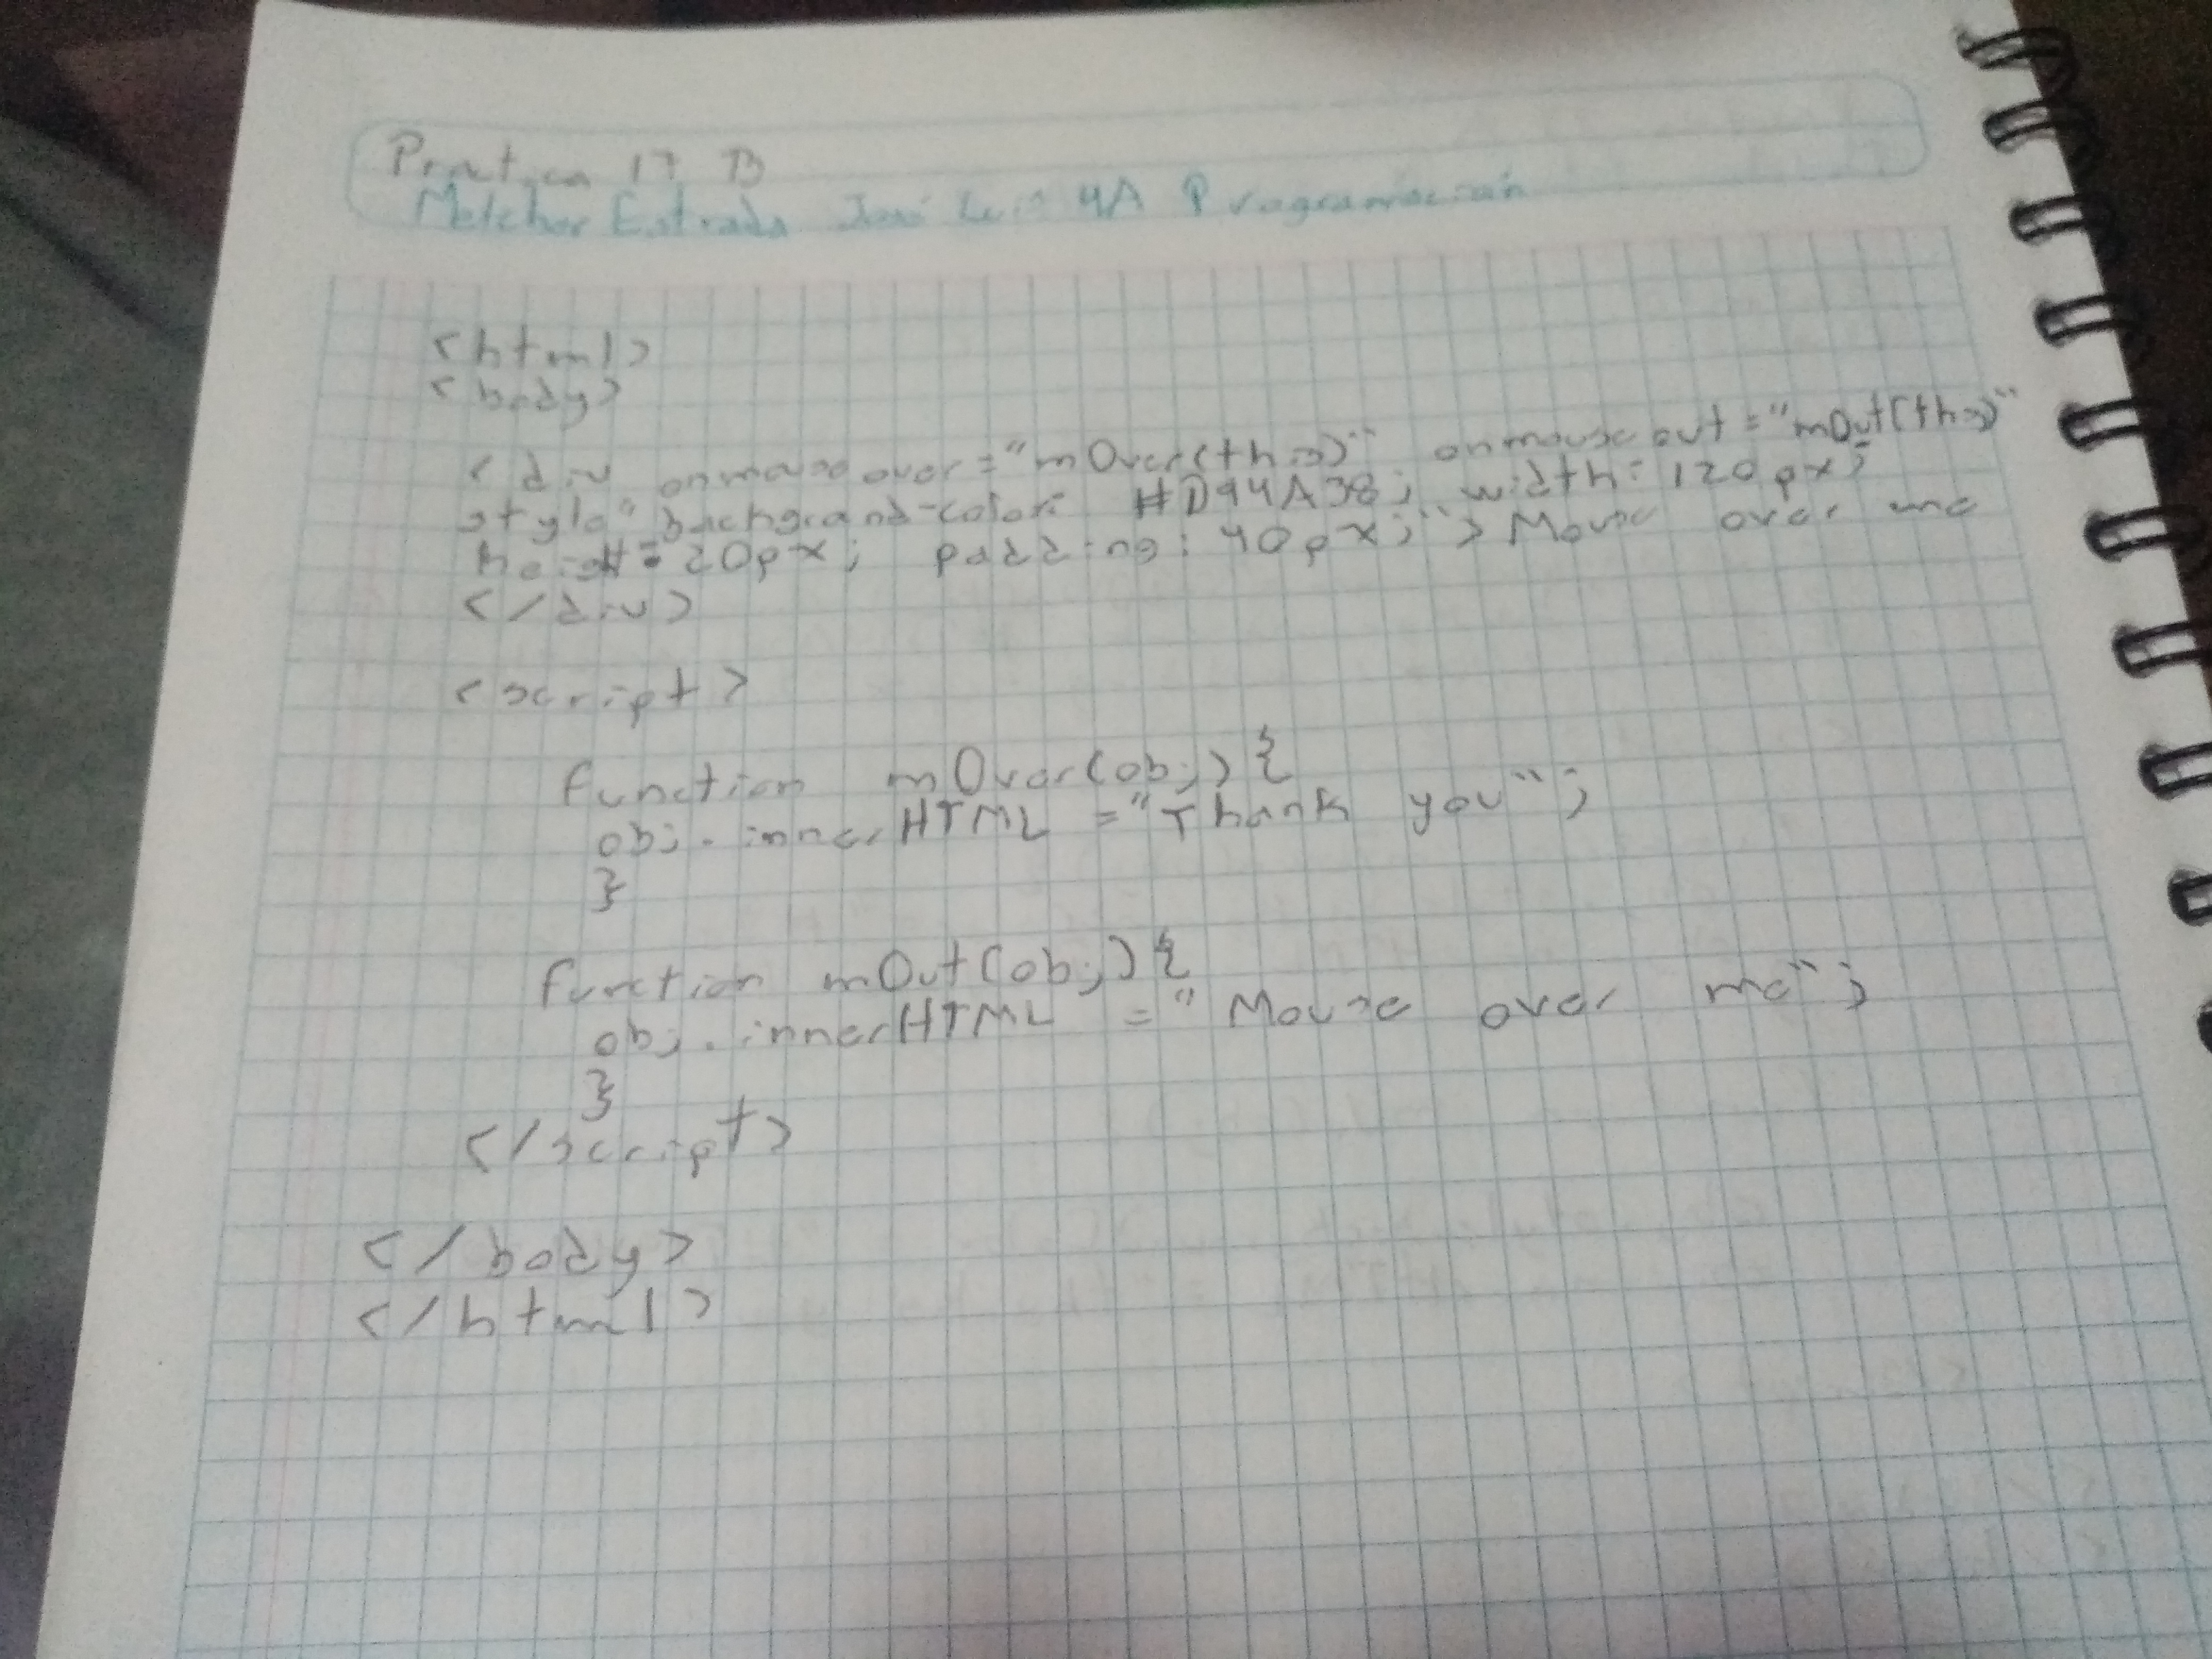 Practica 17 B
Melchor Estrada José Luis 4A Programación
<html>
<body>
<div onmouseover="mOver(this)" onmouseout="mOut(this)"
style"background-color: #D94A38; width: 120px;
height: 20px; padding: 40px;"> Mouse over me
</div>
<script>
function mOver(obj) {
obj.innerHTML = "Thank you";
}
function mOut(obj) {
obj.innerHTML = "Mouse over me";
}
</script>
</body>
</html>